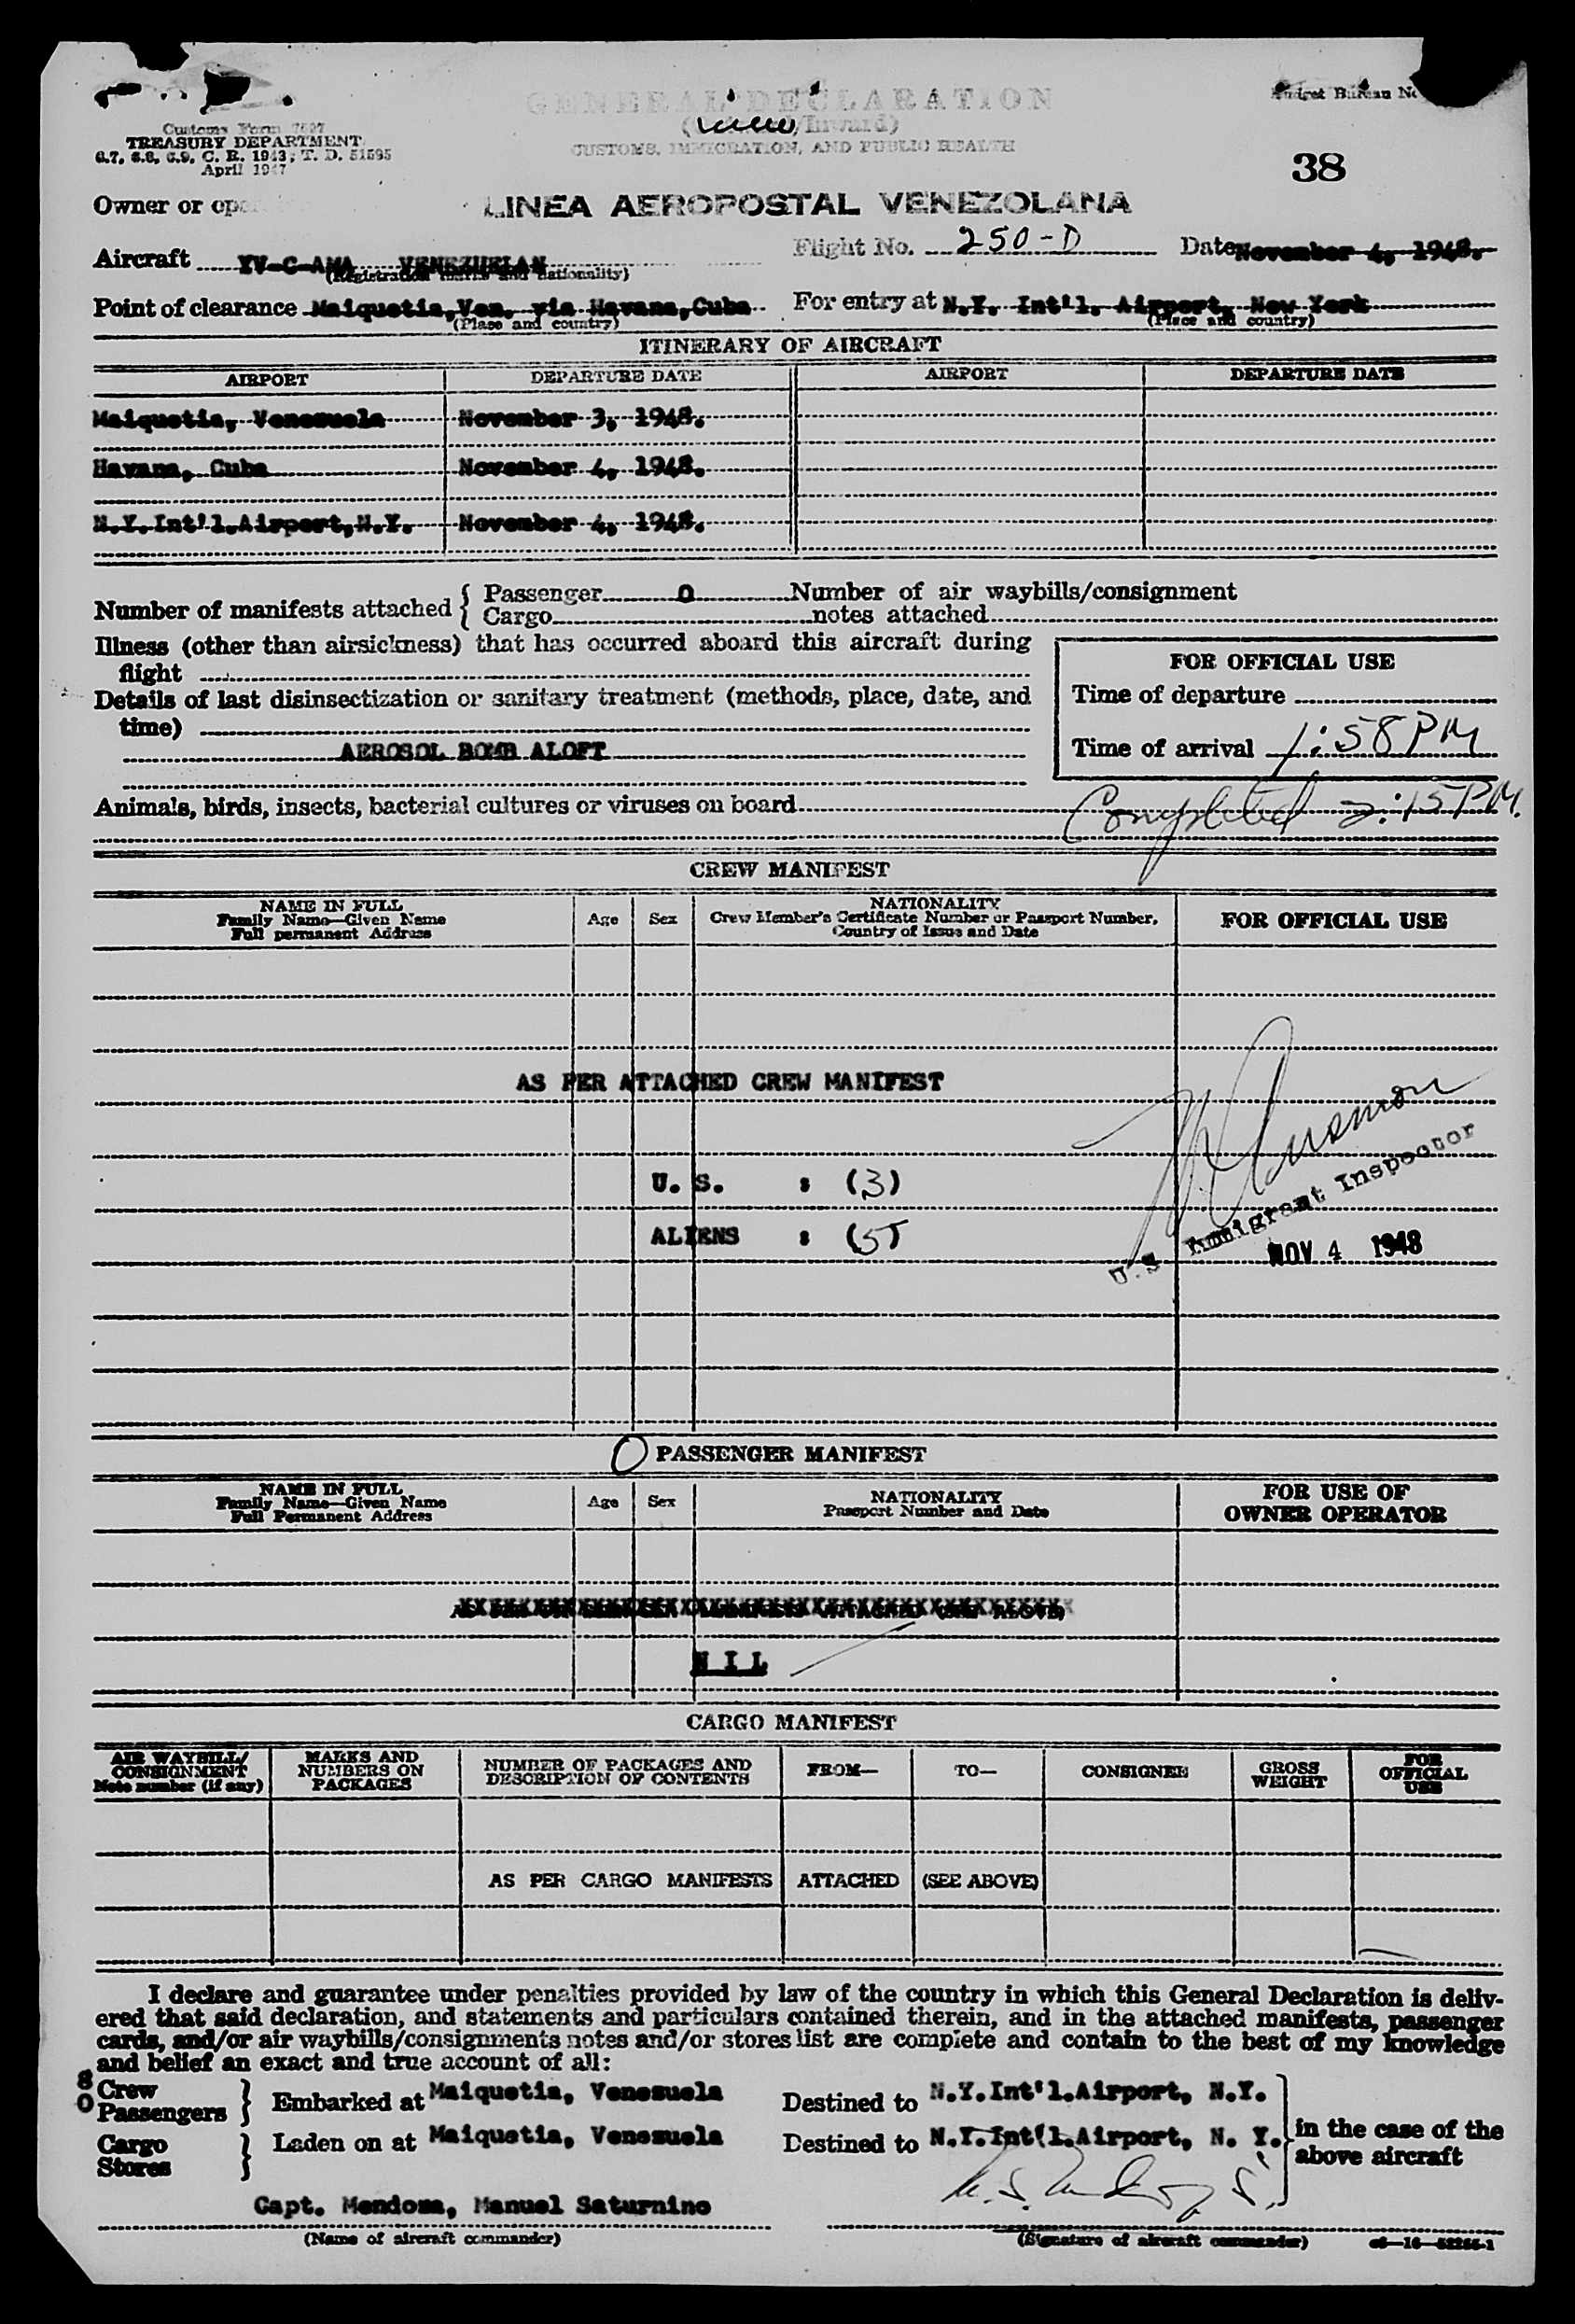 GENERAL DECLARATION
Inward)
CUSTOMS, IMMIGRATION, AND PUBLIC HEALTH
Budget Bureau No
Customs Form 7507
TREASURY DEPARTMENT
6.7, 6.8, 6.9, C. R. 1943; T. D. 51595
April 1947
38
Owner or op
LINEA AEROPOSTAL VENEZOLANA
Aircraft YV-C-AMA VENEZUELAN Flight No. 250-D Date November 4, 1948.
(Registration marks and nationality)
Point of clearance Maiquetia, Ven. via Havana, Cuba For entry at N.Y. Int'l. Airport, New York
(Place and country) (Place and country)
ITINERARY OF AIRCRAFT
AIRPORT DEPARTURE DATE AIRPORT DEPARTURE DATE
Maiquetia, Venezuela November 3, 1948.
Havana, Cuba November 4, 1948.
N.Y. Int'l. Airport, N.Y. November 4, 1948.
Number of manifests attached { Passenger 0 Number of air waybills/consignment
Cargo notes attached
Illness (other than airsickness) that has occurred aboard this aircraft during
flight
Details of last disinsectization or sanitary treatment (methods, place, date, and
time)
AEROSOL BOMB ALOFT
FOR OFFICIAL USE
Time of departure
Time of arrival 1:58 PM
Animals, birds, insects, bacterial cultures or viruses on board Completed 2:15 PM.
CREW MANIFEST
NAME IN FULL
Family Name—Given Name
Full permanent Address
Age Sex
NATIONALITY
Crew Member's Certificate Number or Passport Number,
Country of Issue and Date
FOR OFFICIAL USE
AS PER ATTACHED CREW MANIFEST
U. S. : (3)
ALIENS : (5)
U.S Immigrant Inspector
NOV 4 1948
0 PASSENGER MANIFEST
NAME IN FULL
Family Name—Given Name
Full Permanent Address
Age Sex
NATIONALITY
Passport Number and Date
FOR USE OF
OWNER OPERATOR
NIL
CARGO MANIFEST
AIR WAYBILL/
CONSIGNMENT
Note number (if any)
MARKS AND
NUMBERS ON
PACKAGES
NUMBER OF PACKAGES AND
DESCRIPTION OF CONTENTS
FROM— TO— CONSIGNEE
GROSS
WEIGHT
FOR
OFFICIAL
USE
AS PER CARGO MANIFESTS ATTACHED (SEE ABOVE)
I declare and guarantee under penalties provided by law of the country in which this General Declaration is deliv-
ered that said declaration, and statements and particulars contained therein, and in the attached manifests, passenger
cards, and/or air waybills/consignments notes and/or stores list are complete and contain to the best of my knowledge
and belief an exact and true account of all:
8 Crew
0 Passengers } Embarked at Maiquetia, Venezuela Destined to N.Y. Int'l. Airport, N.Y.
Cargo
Stores } Laden on at Maiquetia, Venezuela Destined to N.Y. Int'l. Airport, N. Y.
in the case of the
above aircraft
Capt. Mendoza, Manuel Saturnino
(Name of aircraft commander) (Signature of aircraft commander) c6—16—52255-1